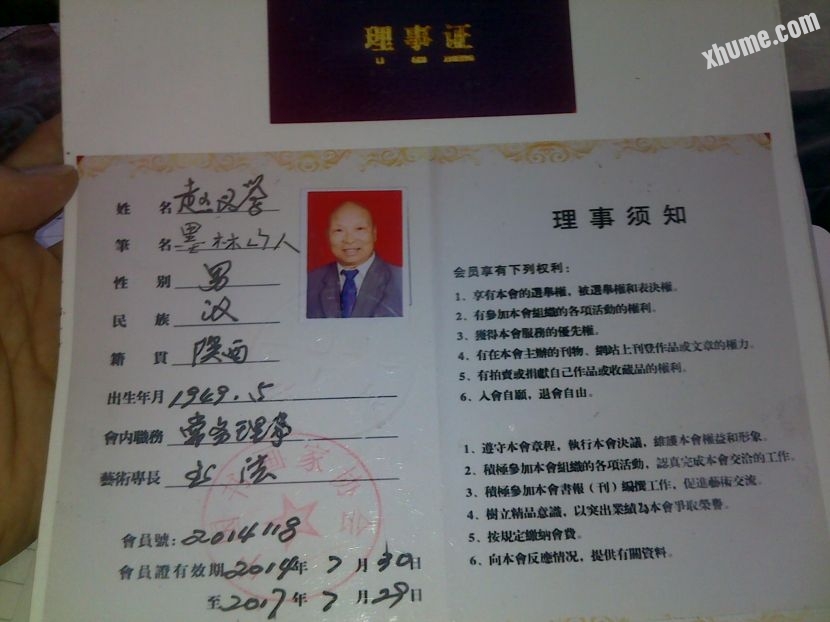 理事证
xhume.com
姓 名 赵文
筆 名 墨林山人
性 别 男
民 族 汉
籍 貫 陕西
出生年月 1949.5
會内職務 常务理事
藝術專長 书法
會員號: 2014118
會員證有效期 2014年 7 月 30 日
至 2017 年 7 月 29 日
理事须知
会员享有下列权利:
1、享有本會的選舉權,被選舉權和表决權。
2、有参加本會組織的各項活動的權利。
3、獲得本會服務的優先權。
4、有在本會主辦的刊物、網站上刊登作品或文章的權力。
5、有拍賣或捐獻自己作品或收藏品的權利。
6、入會自願,退會自由。
1、遵守本會章程,執行本會決議,維護本會權益和形象。
2、積極參加本會組織的各项活動,認真完成本會交洽的工作。
3、積極參加本會書報(刊)編撰工作,促進藝術交流。
4、樹立精品意識,以突出業績為本會爭取榮譽。
5、按規定繳納會費。
6、向本會反應情况,提供有關資料。